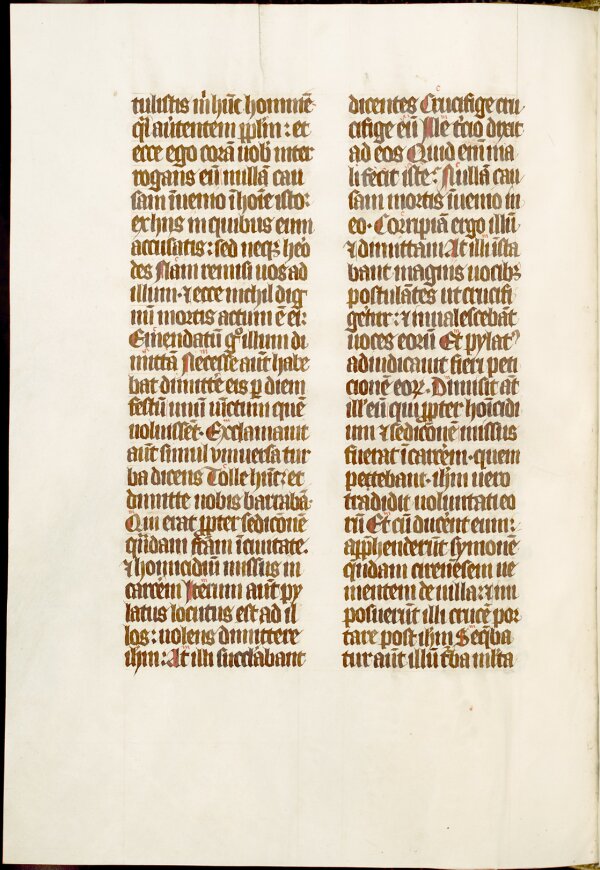 tulistis m̄ hūc hominē
q̄i au̇tentem pp̄lm : et
ecce ego corā uob̄ inter
rogans eū nullā cau
sam īuenio ī hoīe isto :
ex hiis in quibus eum
accusatis : sed neq3 hero
des Nam remisi uos ad
illum · ⁊ ecce nichil dig
nū mortis actum ē ei :
Emendatū gͦ illum di
mittā Necesse aūt habe
bat dimitt̄e eis p̄ diem
festū unū uīctum quē
uoluissēt · Exclamauit
aūt simul vniuersa tur
ba dicens Tolle hūc : et
dimitte nobis barrabā ·
Qui erat ꝓpter sedicionē
q̄dam fc̄am ī ciuitate .
⁊ homicidiū missus in
carcēm Iterum aūt py
latus locutus est ad il
los : uolens dimittere
ihm : At illi succlābant
dicentes Crucifige cru
cifige eū Ille t̄cio dixit
ad eos Quid eni̅ ma
li fecit iste : Nullā cau
sam mortis īuenio in
eo · Corripiā ergo illū
⁊ dimittam At illi īsta
bant magnis uocib3
postulātes ut crucifi
get̄ur : ⁊ īnualescebāt
uoces eorū Et pylat⁹
adiudicauit fieri peti
cionē eoꝝ · Dimisit aūt
ill̄ eū qui ꝓpter homicidi
um ⁊ sedic̄onē missus
fuerat ī carcēm · quem
petebant · ihm uero
tradidit uoluntati eo
rū Et cū ducēnt eum :
app̄henderūt symonē
q̄dam cirenesem ue
nientem de uilla : ⁊ im
posuerūt illi crucē por
tare post ihm Seq̄ba
tur aūt illū t̄ba multa